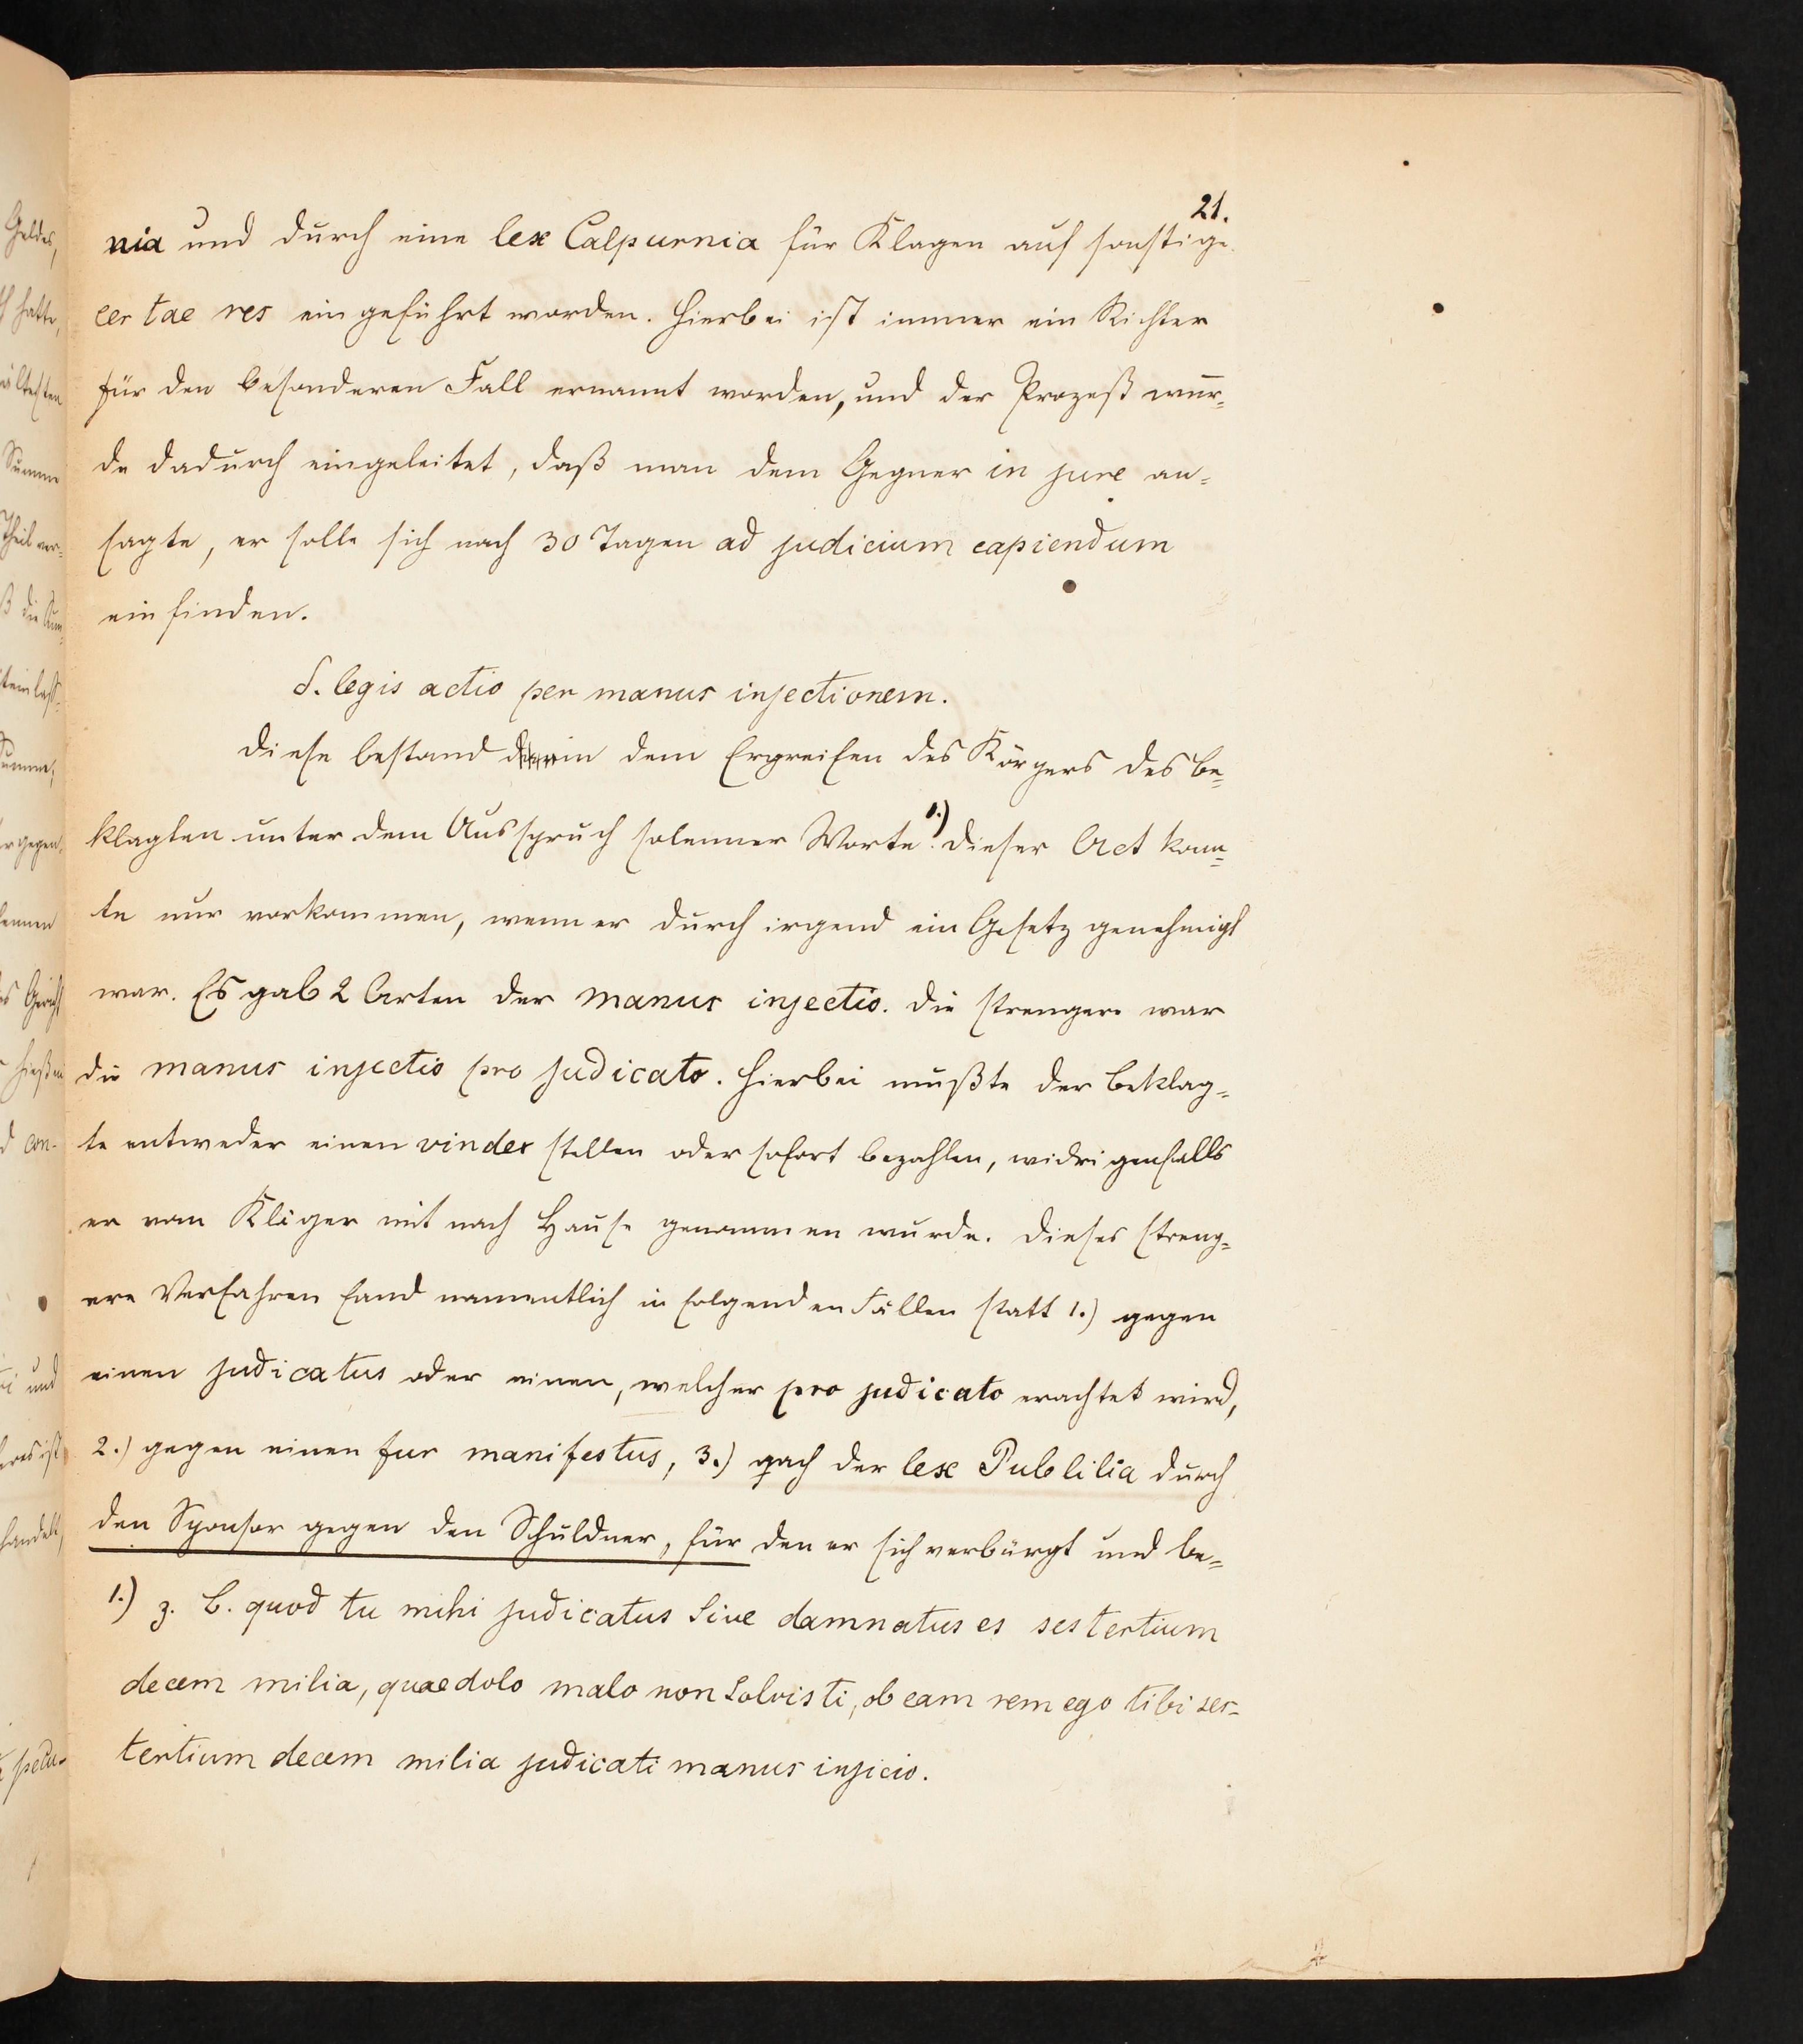 21.
nia und durch eine lex Calpurnia für Klagen auf sonstige
certae res eingeführt worden. Hierbei ist immer ein Richter
für den besonderen Fall ernannt worden, und der Prozeß wur=
de dadurch eingeleitet, daß man dem Gegner in jure an=
sagte, er solle sich nach 30 Tagen ad judicium capiendum
einfinden.
δ. legis actio per manus injectionem.
Diese bestand in dem Ergreifen des Körpers des Be=
klagten unter dem Ausspruch solenner Worte 1.). Dieser Act konn=
te nur vorkommen, wenn er durch irgend ein Gesetz genehmigt
war. Es gab 2 Arten der manus injectio. Die strengere war
die manus injectio pro judicato. Hierbei mußte der Beklag=
te entweder einen vindex stellen oder sofort bezahlen, widrigenfalls
er vom Kläger mit nach Hause genommen wurde. Dieses streng=
ere Verfahren fand namentlich in folgenden Fällen statt 1.) gegen
einen judicatus oder einen, welcher pro judicato erachtet wird,
2.) gegen einen fur manifestus, 3.) nach der lex Publilia durch
den Sponsor gegen den Schuldner, für den er sich verbürgt und be=
1.) z. B. quod tu mihi judicatus sive damnatus es sestertium
decem milia, quae dolo malo non solvisti, ob eam rem ego tibi ses-
tertium decem milia judicati manus injicio.